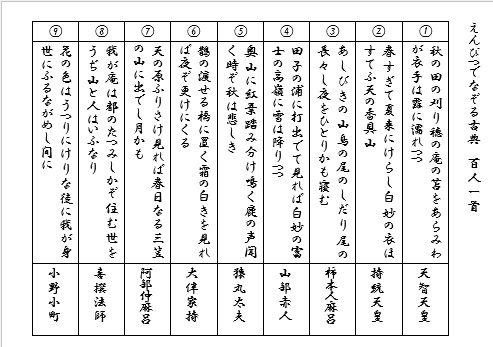 えんぴつでなぞる古典　百人一首
①
秋の田の刈り穂の庵の苫をあらみわ
が衣手は露に濡れつつ
天智天皇
②
春すぎて夏来にけらし白妙の衣ほ
すてふ天の香具山
持統天皇
③
あしびきの山鳥の尾のしだり尾の
長々し夜をひとりかも寝む
柿本人麻呂
④
田子の浦に打出でて見れば白妙の富
士の高嶺に雪は降りつつ
山部赤人
⑤
奥山に紅葉踏み分け鳴く鹿の声聞
く時ぞ秋は悲しき
猿丸太夫
⑥
鵲の渡せる橋に置く霜の白きを見れ
ば夜ぞ更けにくる
大伴家持
⑦
天の原ふりさけ見れば春日なる三笠
の山に出でし月かも
阿部仲麻呂
⑧
我が庵は都のたつみしかぞ住む世を
うぢ山と人はいふなり
喜撰法師
⑨
花の色はうつりにけりな徒に我が身
世にふるながめし間に
小野小町